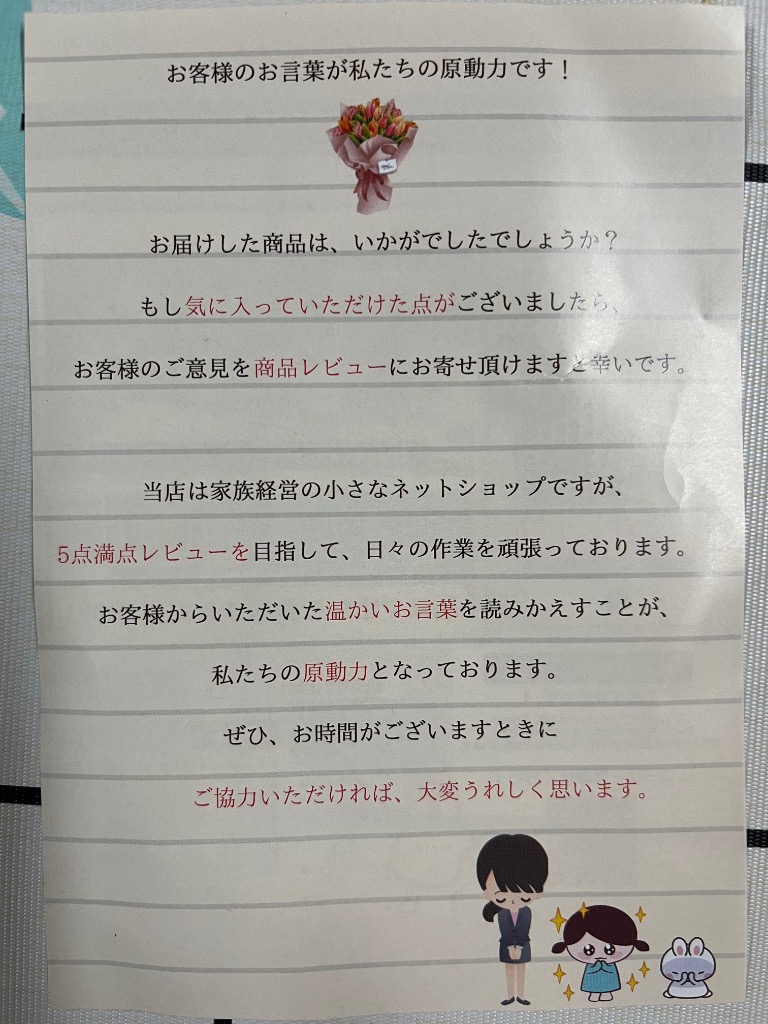 お客様のお言葉が私たちの原動力です！
お届けした商品は、いかがでしたでしょうか？
もし気に入っていただけた点がございましたら、
お客様のご意見を商品レビューにお寄せ頂けますと幸いです。
当店は家族経営の小さなネットショップですが、
5点満点レビューを目指して、日々の作業を頑張っております。
お客様からいただいた温かいお言葉を読みかえすことが、
私たちの原動力となっております。
ぜひ、お時間がございますときに
ご協力いただければ、大変うれしく思います。